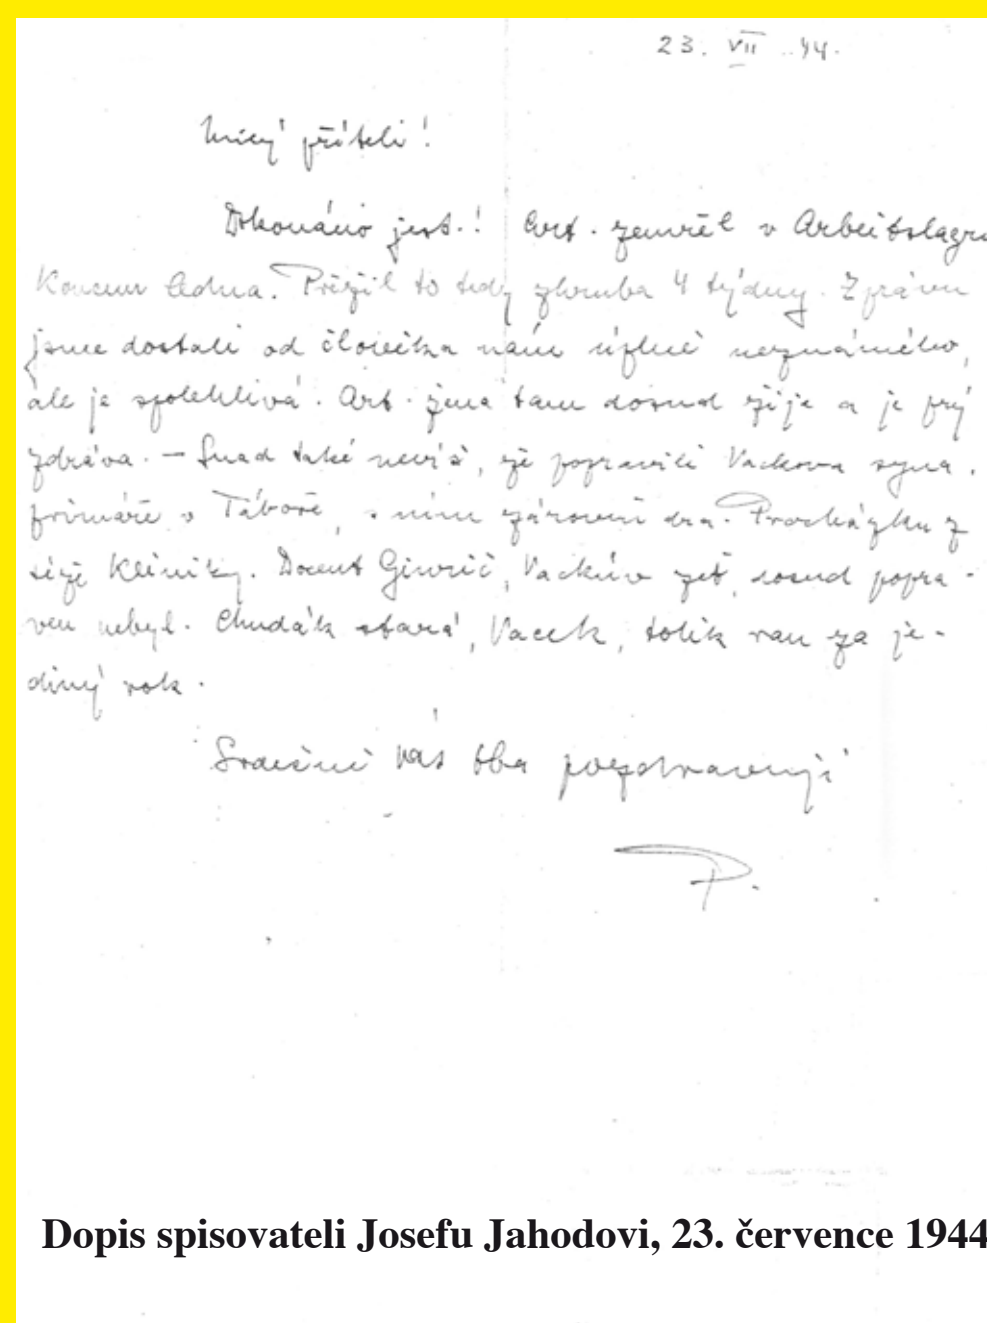 23. VII. 44.
Milý příteli!
Dokonáno jest.! Art. zemřel v Arbeitslagru
Přežil to tedy zhruba 4 týdny. Zprávu
jsme dostali od člověka nám úplně neznámého,
ale je spolehlivá. Art. žena tam dosud žije a je prý
zdráva. – Snad také nevíš, že popravili Vackova syna,
primáře v Táboře, s ním zároveň dra. Procházku z
téže kliniky. Docent Vackův zeť, dosud popra-
ven nebyl. Chudák starý, Vacek, tolik ran za je-
diný rok.
Srdečně vás oba pozdravuji
P.
Dopis spisovateli Josefu Jahodovi, 23. července 1944